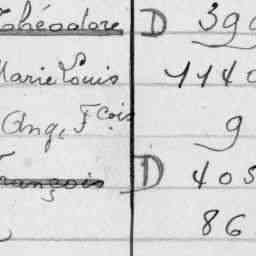 Théodore D 399
Marie Louis 1140
Ang, Fçois 9
François D 405
86